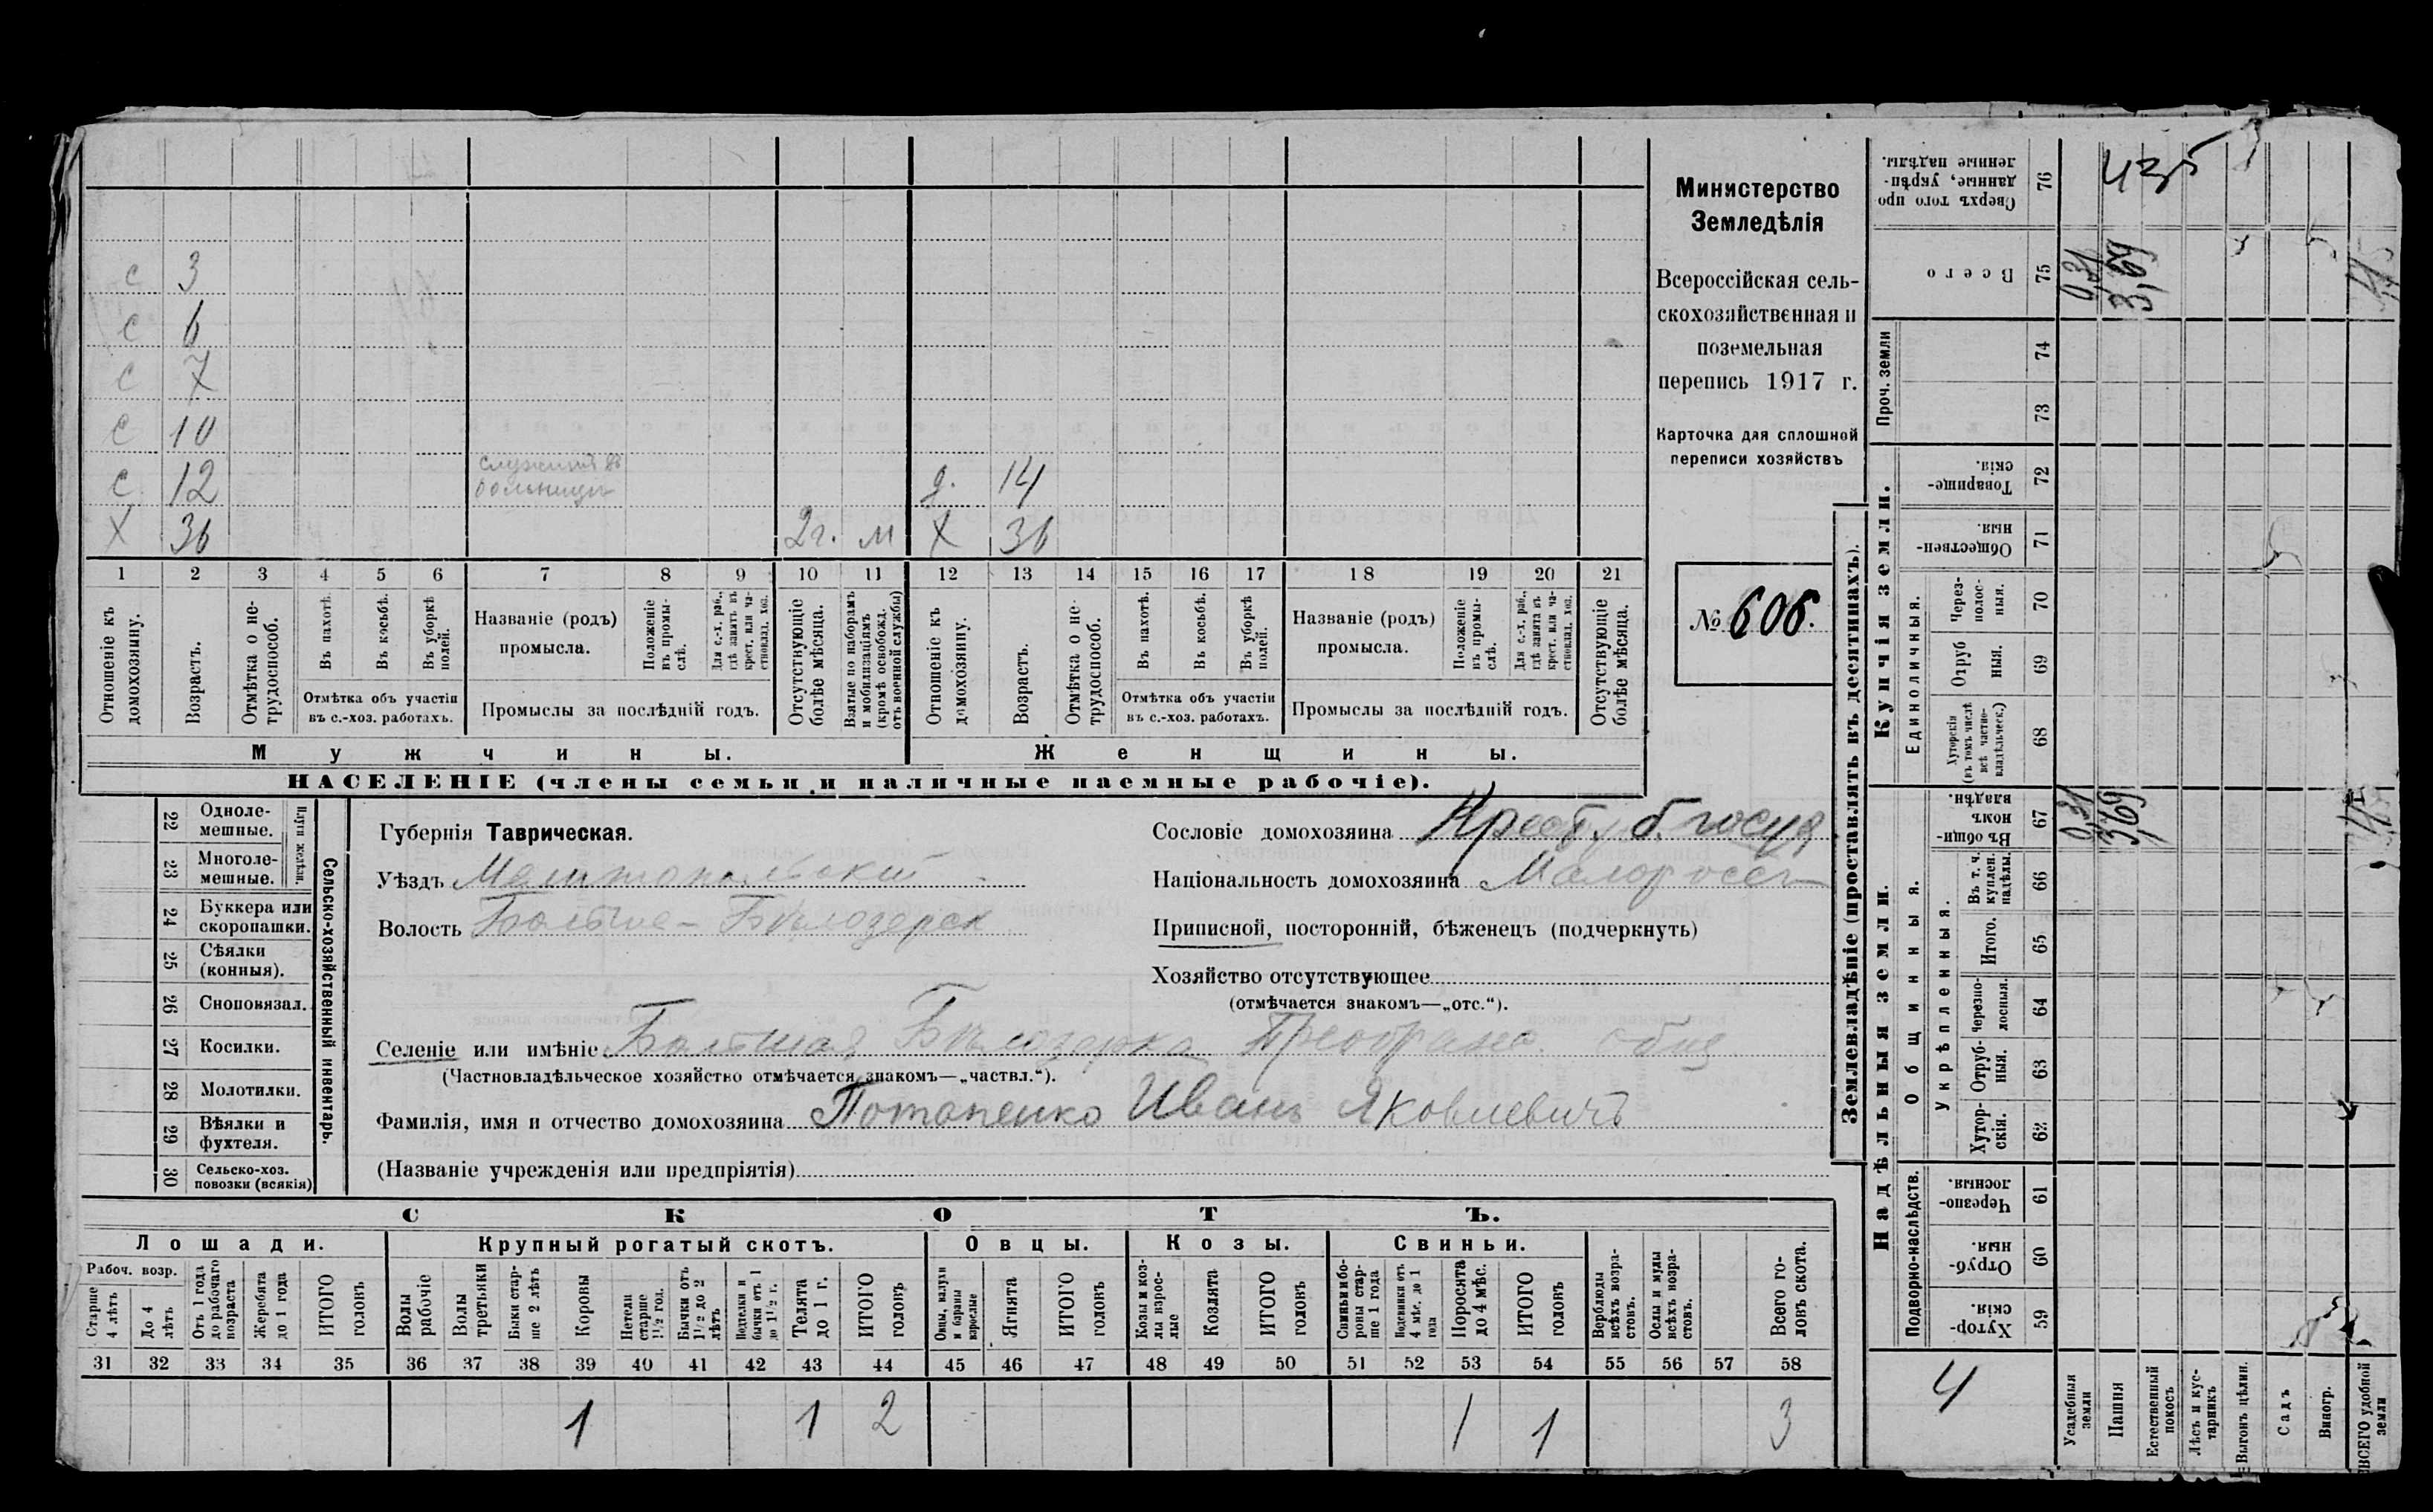 Министерство
Земледѣлія
Всероссійская сель-
скохозяйственная и
поземельная
перепись 1917 г.
Карточка для сплошной
переписи хозяйствъ
№ 606.
с 3
с 6
с 7
с 10
с 12 служитъ въ д. 14
больницы
Х 36 2г. м Х 36
1 2 3 4 5 6 7 8 9 10 11 12 13 14 15 16 17 18 19 20 21
Отношеніе къ домохозяину.
Возрастъ.
Отмѣтка о не-трудоспособ.
Въ пахотѣ.
Въ косьбѣ.
Въ уборкѣ полей.
Отмѣтка объ участіи
въ с.-хоз. работахъ.
Названіе (родъ)
промысла.
Положеніе въ промы-слѣ.
Для с.-х. раб., гдѣ занятъ въ крест. или ча-стновлад. хоз.
Промыслы за послѣдній годъ.
Отсутствующіе болѣе мѣсяца.
Взятые по наборамъ и мобилизаціямъ (кромѣ освобожд. отъ военной службы)
Отношеніе къ домохозяину.
Возрастъ.
Отмѣтка о не-трудоспособ.
Въ пахотѣ.
Въ косьбѣ.
Въ уборкѣ полей.
Отмѣтка объ участіи
въ с.-хоз. работахъ.
Названіе (родъ)
промысла.
Положеніе въ промы-слѣ.
Для с.-х. раб., гдѣ занята въ крест. или ча-стновлад. хоз.
Промыслы за послѣдній годъ.
Отсутствующіе болѣе мѣсяца.
Мужчины.
Женщины.
НАСЕЛЕНІЕ (члены семьи и наличные наемные рабочіе).
Сельско-хозяйственный инвентарь.
Плуги желѣзн.
22 Одноле-мешные.
23 Многоле-мешные.
24 Буккера или скоропашки.
25 Сѣялки (конныя).
26 Сноповязал.
27 Косилки.
28 Молотилки.
29 Вѣялки и фухтеля.
30 Сельско-хоз. повозки (всякія)
Губернія Таврическая.
Уѣздъ Мелитопольскій
Волость Больше-Бѣлозерск
Сословіе домохозяина Крест. б. госуд
Національность домохозяина Малороссъ
Приписной, посторонній, бѣженецъ (подчеркнуть)
Хозяйство отсутствующее
(отмѣчается знакомъ—„отс.“).
Селеніе или имѣніе Большая Бѣлозерка Преображ. общ
(Частновладѣльческое хозяйство отмѣчается знакомъ—„частвл.“).
Фамилія, имя и отчество домохозяина Потапенко Иванъ Яковлевичъ
(Названіе учрежденія или предпріятія)
СКОТЪ.
Лошади. Крупный рогатый скотъ. Овцы. Козы. Свиньи.
Рабоч. возр.
Старше 4 лѣтъ
До 4 лѣтъ
Отъ 1 года до рабочаго возраста
Жеребята до 1 года
ИТОГО головъ
Волы рабочіе
Волы третьяки
Быки стар-ше 2 лѣтъ
Коровы
Нетели старше 1½ год.
Бычки отъ 1½ до 2 лѣтъ
Подтелки и бычки отъ 1 до 1½ г.
Телята до 1 г.
ИТОГО головъ
Овцы, валухи и бараны взрослые
Ягнята
ИТОГО головъ
Козы и коз-лы взрос-лые
Козлята
ИТОГО головъ
Свиньи и бо-ровы стар-ше 1 года
Подсвинки отъ 4 мѣс. до 1 года
Поросята до 4 мѣс.
ИТОГО головъ
Верблюды всѣхъ возра-стовъ.
Ослы и мулы всѣхъ возра-стовъ.
Всего го-ловъ скота.
31 32 33 34 35 36 37 38 39 40 41 42 43 44 45 46 47 48 49 50 51 52 53 54 55 56 57 58
1 1 2 1 1 3
Землевладѣніе (проставлять въ десятинахъ).
Надѣльныя земли.
Купчія земли.
Проч. земли
Подворно-наслѣдств.
Общинныя.
Укрѣпленныя.
Единоличныя.
Сверхъ того про данные, укрѣп-ленные надѣлы. 76
Всего 75 0,31 3,69
74
73
Товарище-скія. 72
Обществен-ныя. 71
Через-полос-ныя. 70
Отруб ныя. 69
Хуторскія (въ томъ числѣ всѣ частно-владѣльческ.) 68
Въ общи-номъ владѣн. 67 0,31 3,69
Въ т. ч. куплен. надѣлы. 66
Итого. 65
Черезпо-лосныя. 64
Отруб-ныя. 63
Хутор-скія. 62
Черезпо-лосныя. 61
Отруб-ныя. 60
Хутор-скія. 59
4
Усадебныя земли
Пашня
Естественный покосъ
Лѣсъ и кус-тарникъ
Выгонъ цѣлин.
Садъ
Виногр.
ВСЕГО удобной земли